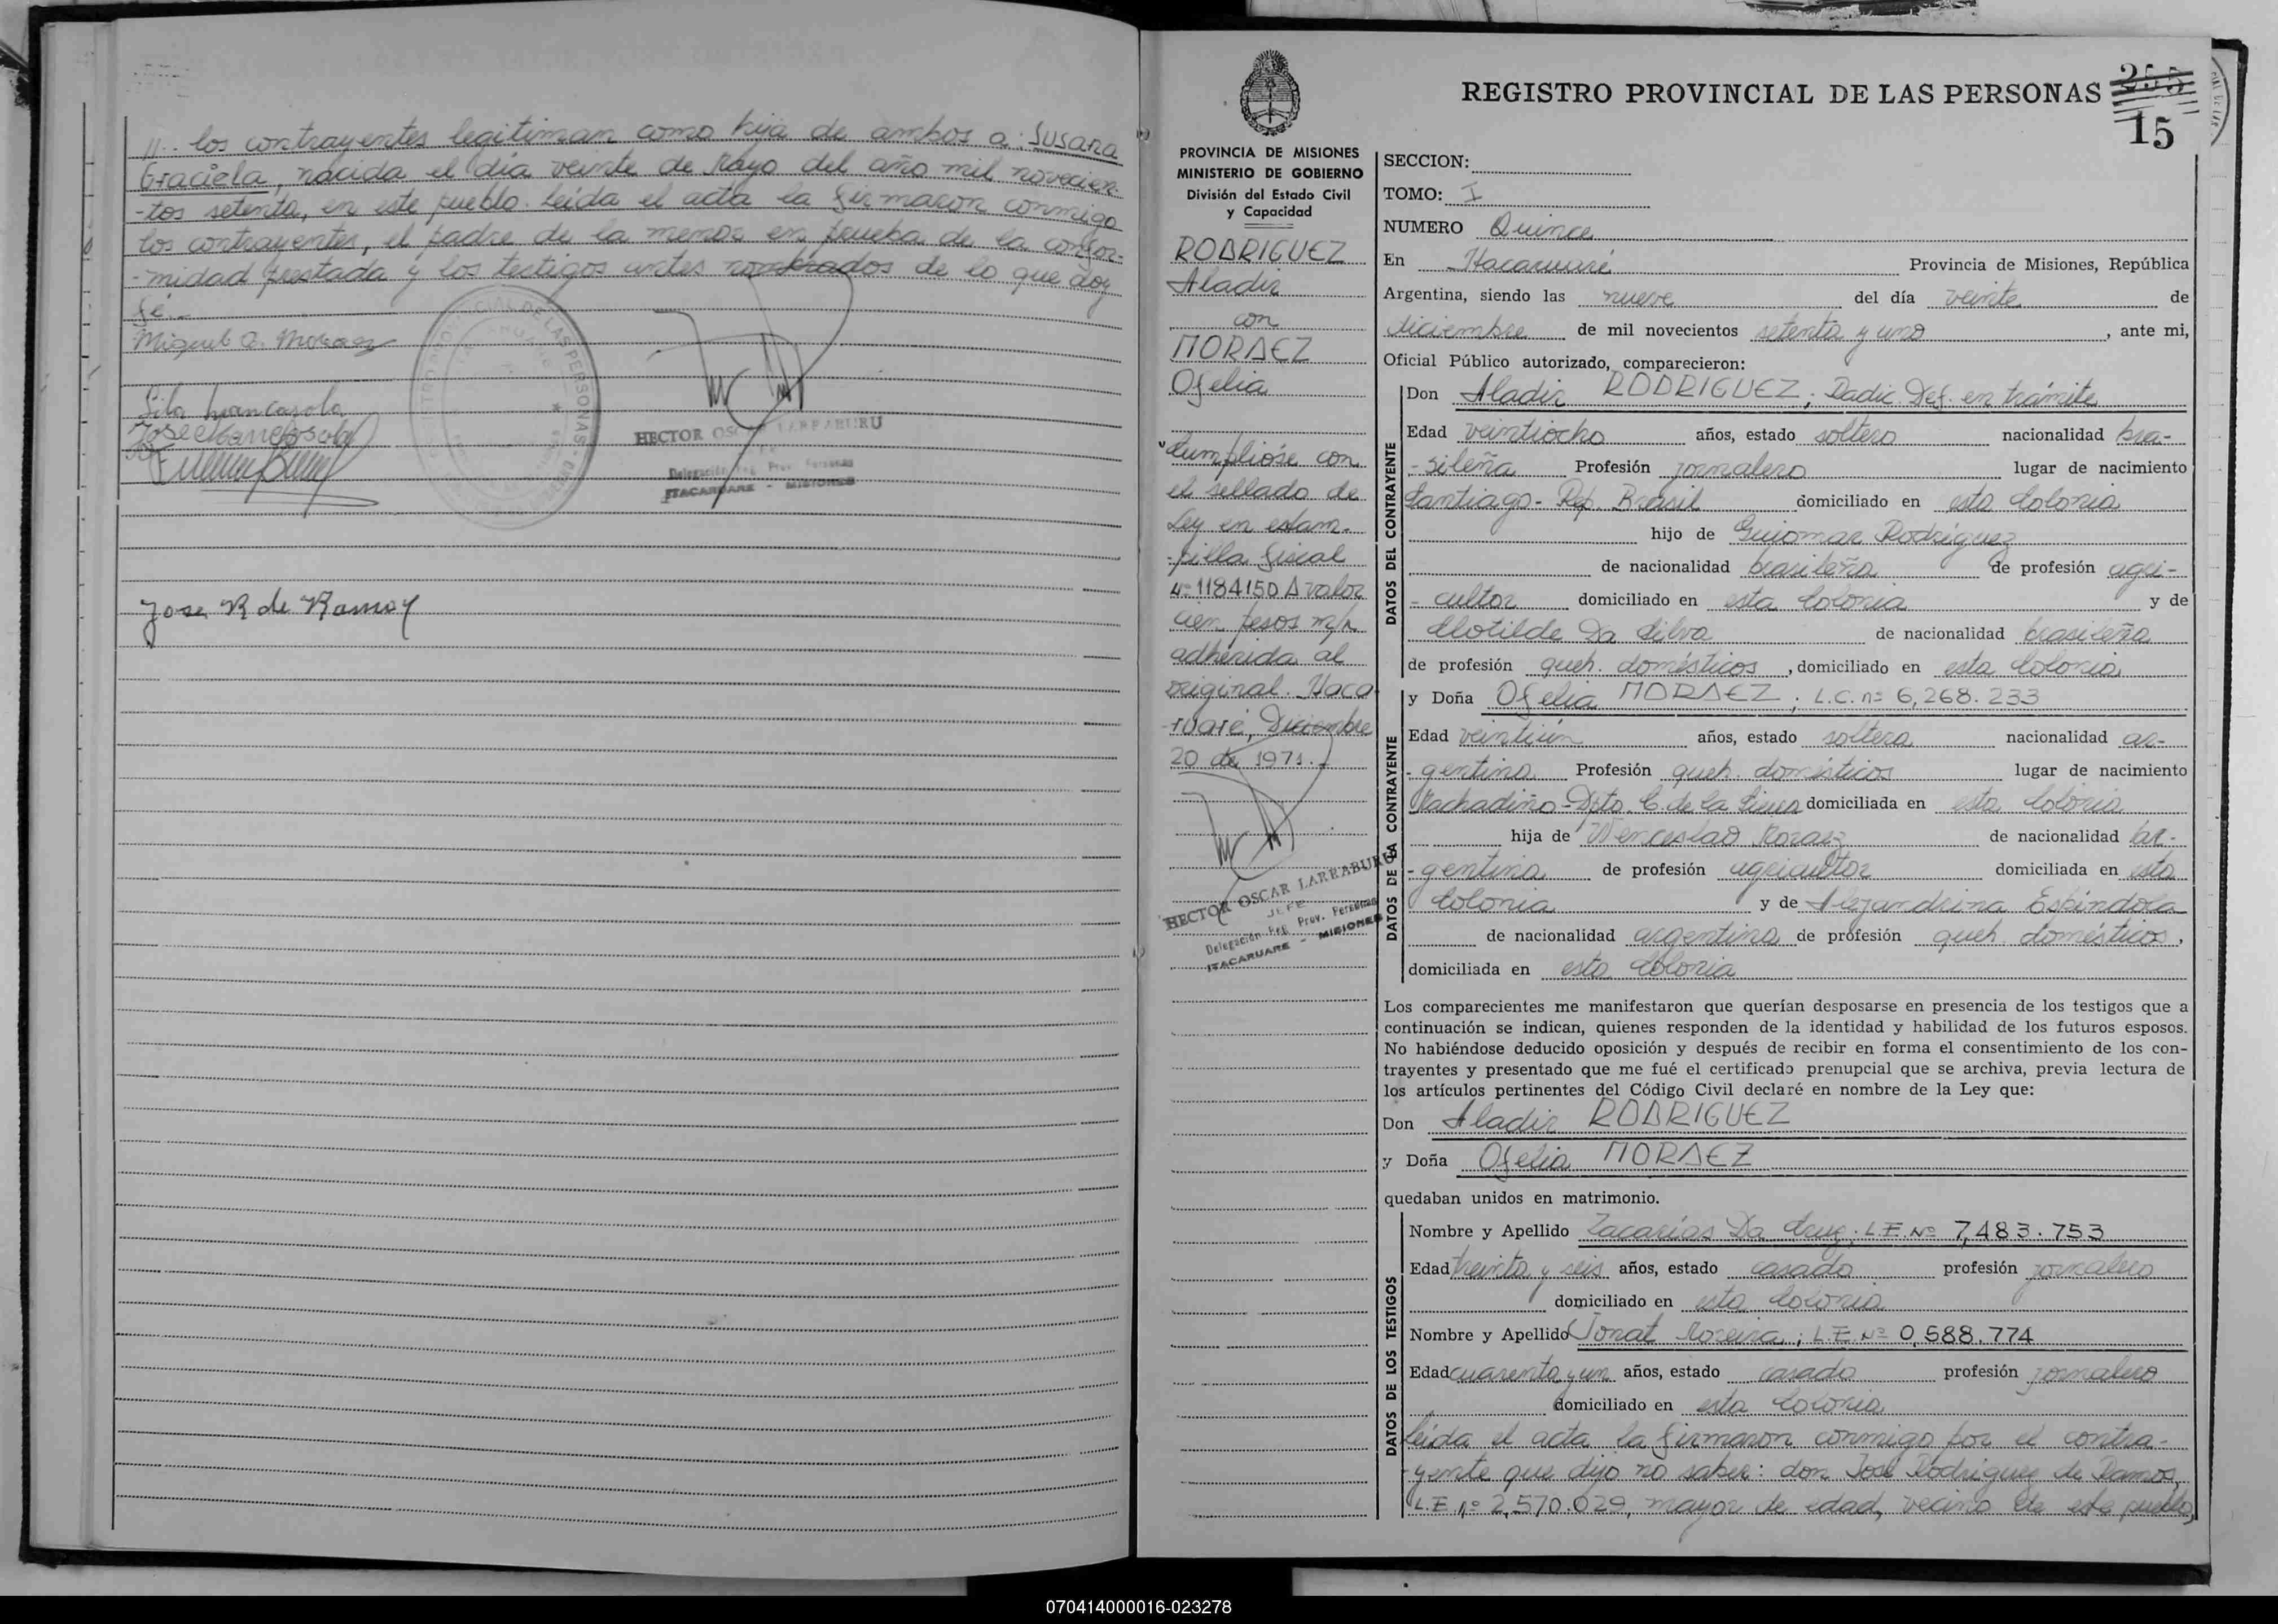 //.. los contrayentes legitiman como hija de ambos a: Susana
Graciela, nacida el día veinte de Mayo del año mil novecien-
-tos setenta, en este pueblo. Leída el acta la firmaron conmigo
los contrayentes, el padre de la menor en prueba de la confor-
-midad prestada y los testigos antes nombrados de lo que doy
fé.-
Miguel A. Moraez
HECTOR OSCAR LARRABURU
Delegación Reg. Prov. Personas
ITACARUARE - MISIONES
Jose R de Ramos
REGISTRO PROVINCIAL DE LAS PERSONAS
255
15
PROVINCIA DE MISIONES
MINISTERIO DE GOBIERNO
División del Estado Civil
y Capacidad
RODRIGUEZ
Aladir
con
MORAEZ
Ofelia
"Cumplióse con
el sellado de
Ley en estam-
-pilla fiscal
Nº 1184150 A valor
cien pesos m/n
adherida al
original. Itaca
-ruaré, Diciembre
20 de 1971.-
HECTOR OSCAR LARRABURU
JEFE
Delegación Reg. Prov. Personas
ITACARUARE - MISIONES
SECCION:
TOMO: I
NUMERO Quince
En Itacaruaré Provincia de Misiones, República
Argentina, siendo las nueve del día veinte de
diciembre de mil novecientos setenta y uno, ante mi,
Oficial Público autorizado, comparecieron:
DATOS DEL CONTRAYENTE
Don Aladir RODRIGUEZ; Radic. Def. en trámite
Edad veintiocho años, estado soltero nacionalidad bra-
-sileña Profesión jornalero lugar de nacimiento
Santiago - Rep. Brasil domiciliado en esta Colonia
hijo de Guiomar Rodriguez
de nacionalidad brasileña de profesión agri-
-cultor domiciliado en esta Colonia y de
Clotilde Da Silva de nacionalidad brasileña
de profesión queh. domésticos, domiciliado en esta Colonia
DATOS DE LA CONTRAYENTE
y Doña Ofelia MORAEZ; L.C. nº 6,268.233
Edad veintiún años, estado soltera nacionalidad ar-
-gentina Profesión queh. domésticos lugar de nacimiento
Machadiño-Dpto. C. de la Sierra domiciliada en esta Colonia
hija de Wenceslao Moraez de nacionalidad ar-
-gentina de profesión agricultor domiciliada en esta
Colonia y de Alejandrina Espindola
de nacionalidad argentina de profesión queh. domésticos,
domiciliada en esta Colonia
Los comparecientes me manifestaron que querían desposarse en presencia de los testigos que a
continuación se indican, quienes responden de la identidad y habilidad de los futuros esposos.
No habiéndose deducido oposición y después de recibir en forma el consentimiento de los con-
trayentes y presentado que me fué el certificado prenupcial que se archiva, previa lectura de
los artículos pertinentes del Código Civil declaré en nombre de la Ley que:
Don Aladir RODRIGUEZ
y Doña Ofelia MORAEZ
quedaban unidos en matrimonio.
DATOS DE LOS TESTIGOS
Nombre y Apellido Zacarías Da Cruz; L.E. Nº 7,483.753
Edad treinta y seis años, estado casado profesión jornalero
domiciliado en esta Colonia
Nombre y Apellido Jonat Moreira; L.E. Nº 0,588.774
Edad cuarenta y un años, estado casado profesión jornalero
domiciliado en esta Colonia
Leída el acta la firmaron conmigo por el contra-
-yente que dijo no saber: don José Rodriguez de Ramos,
L.E. nº 2,570.029, mayor de edad, vecino de este pueblo,
070414000016-023278